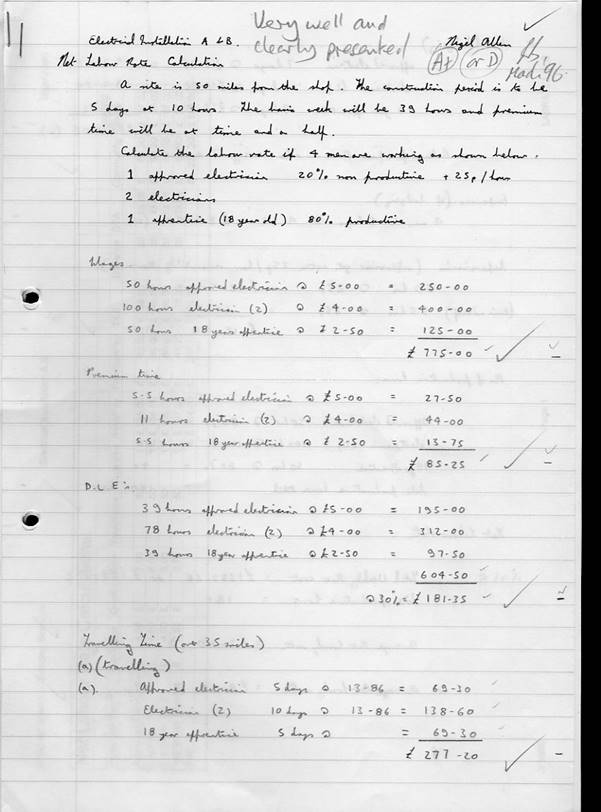 Very well and
Electrical Installation A & B. clearly presented Nigel Allen
Net Labour Rate Calculation A+ or D March 96
A site is 50 miles from the shop. The construction period is to be
5 days at 10 hours. The basis week will be 39 hours and premium
time will be at time and a half.
Calculate the labour rate if 4 men are working as shown below.
1 approved electrician 20% non productive + 25p/hour
2 electricians
1 apprentice (18 year old) 80% productive
Wages
50 hours approved electrician @ £5-00 = 250-00
100 hours electrician (2) @ £4-00 = 400-00
50 hours 18 year apprentice @ £2-50 = 125-00
£775-00
Premium time
5-5 hours approved electrician @ £5-00 = 27-50
11 hours electrician (2) @ £4-00 = 44-00
5-5 hours 18 year apprentice @ £2-50 = 13-75
£85-25
D.L.E's
39 hours approved electrician @ £5-00 = 195-00
78 hours electrician (2) @ £4-00 = 312-00
39 hours 18 year apprentice @ £2-50 = 97-50
604-50
@30% = £181-35
Travelling Time (over 35 miles)
(a) (travelling)
(a). Approved electrician 5 days @ 13-86 = 69-30
Electrician (2) 10 days @ 13-86 = 138-60
18 year apprentice 5 days @ = 69-30
£277-20